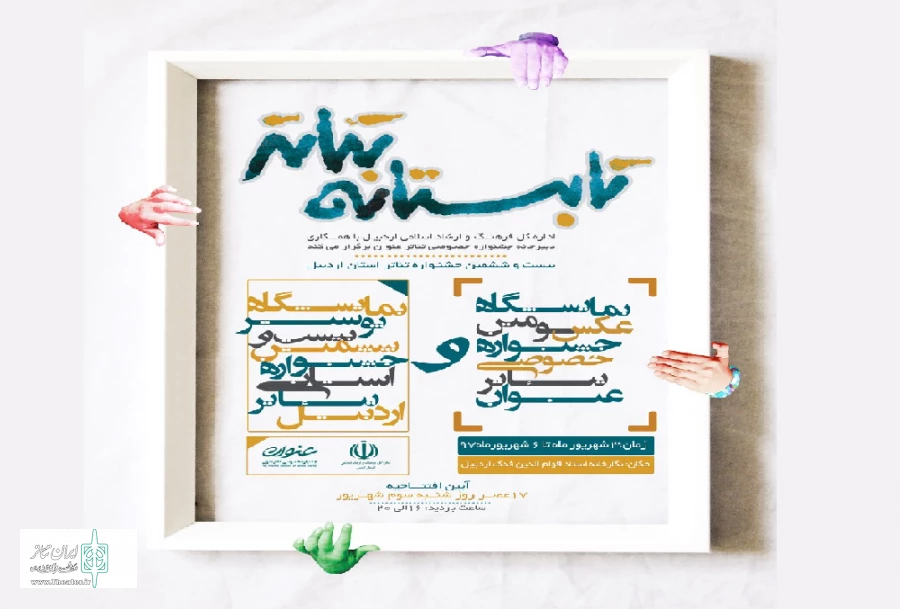 تابستانه تئاتر
اداره کل فرهنگ و ارشاد اسلامی اردبیل با همکاری
دبیرخانه جشنواره خصوصی تئاتر عنوان برگزار می کند
بیست و ششمین جشنواره تئاتر استان اردبیل
نمایشگاه
عکس سومین
جشنواره
خصوصی
تئاتر
عنوان
و
نمایشگاه
پوستر
بیست و
ششمین
جشنواره
استانی
تئاتر
اردبیل
زمان: ۳ شهریور ماه تا ۶ شهریور ماه ۹۷
مکان: نگارخانه استاد قوام الدین فدک اردبیل
عنوان
آیین افتتاحیه
۱۷ عصر روز شنبه سوم شهریور
ساعت بازدید: ۱۶ الی ۲۰
ایران تئاتر
www.Theater.ir